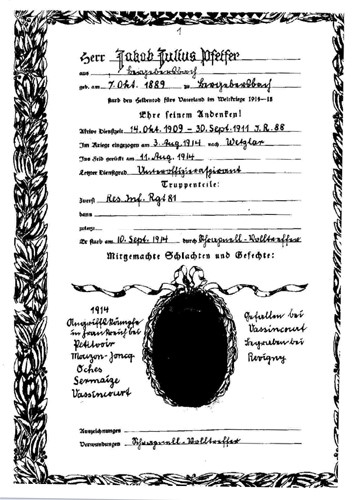 1
Herr Jakob Julius Pfeifer
aus Bergebersbach
geb. am 7. Okt. 1889 zu Bergebersbach
starb den Heldentod fürs Vaterland im Weltkriege 1914–18
Ehre seinem Andenken!
Aktive Dienstzeit 14. Okt. 1909 – 30. Sept. 1911 J.R. 88
Im Kriege eingezogen am 3. Aug. 1914 nach Wetzlar
Ins Feld gerückt am 11. Aug. 1914
Letzter Dienstgrad Unteroffizieraspirant
Truppenteile:
Zuerst Res. Inf. Rgt 81
dann
zuletzt
Er starb am 10. Sept. 1914 durch Schrapnell-Volltreffer
Mitgemachte Schlachten und Gefechte:
1914
Angriffskämpfe
in Frankreich bei
Petitvoir
Mazon-Joncq
Oches
Sermaize
Vassincourt
Gefallen bei
Vassincourt
begraben bei
Revigny
Auszeichnungen
Verwundungen Schrapnell-Volltreffer